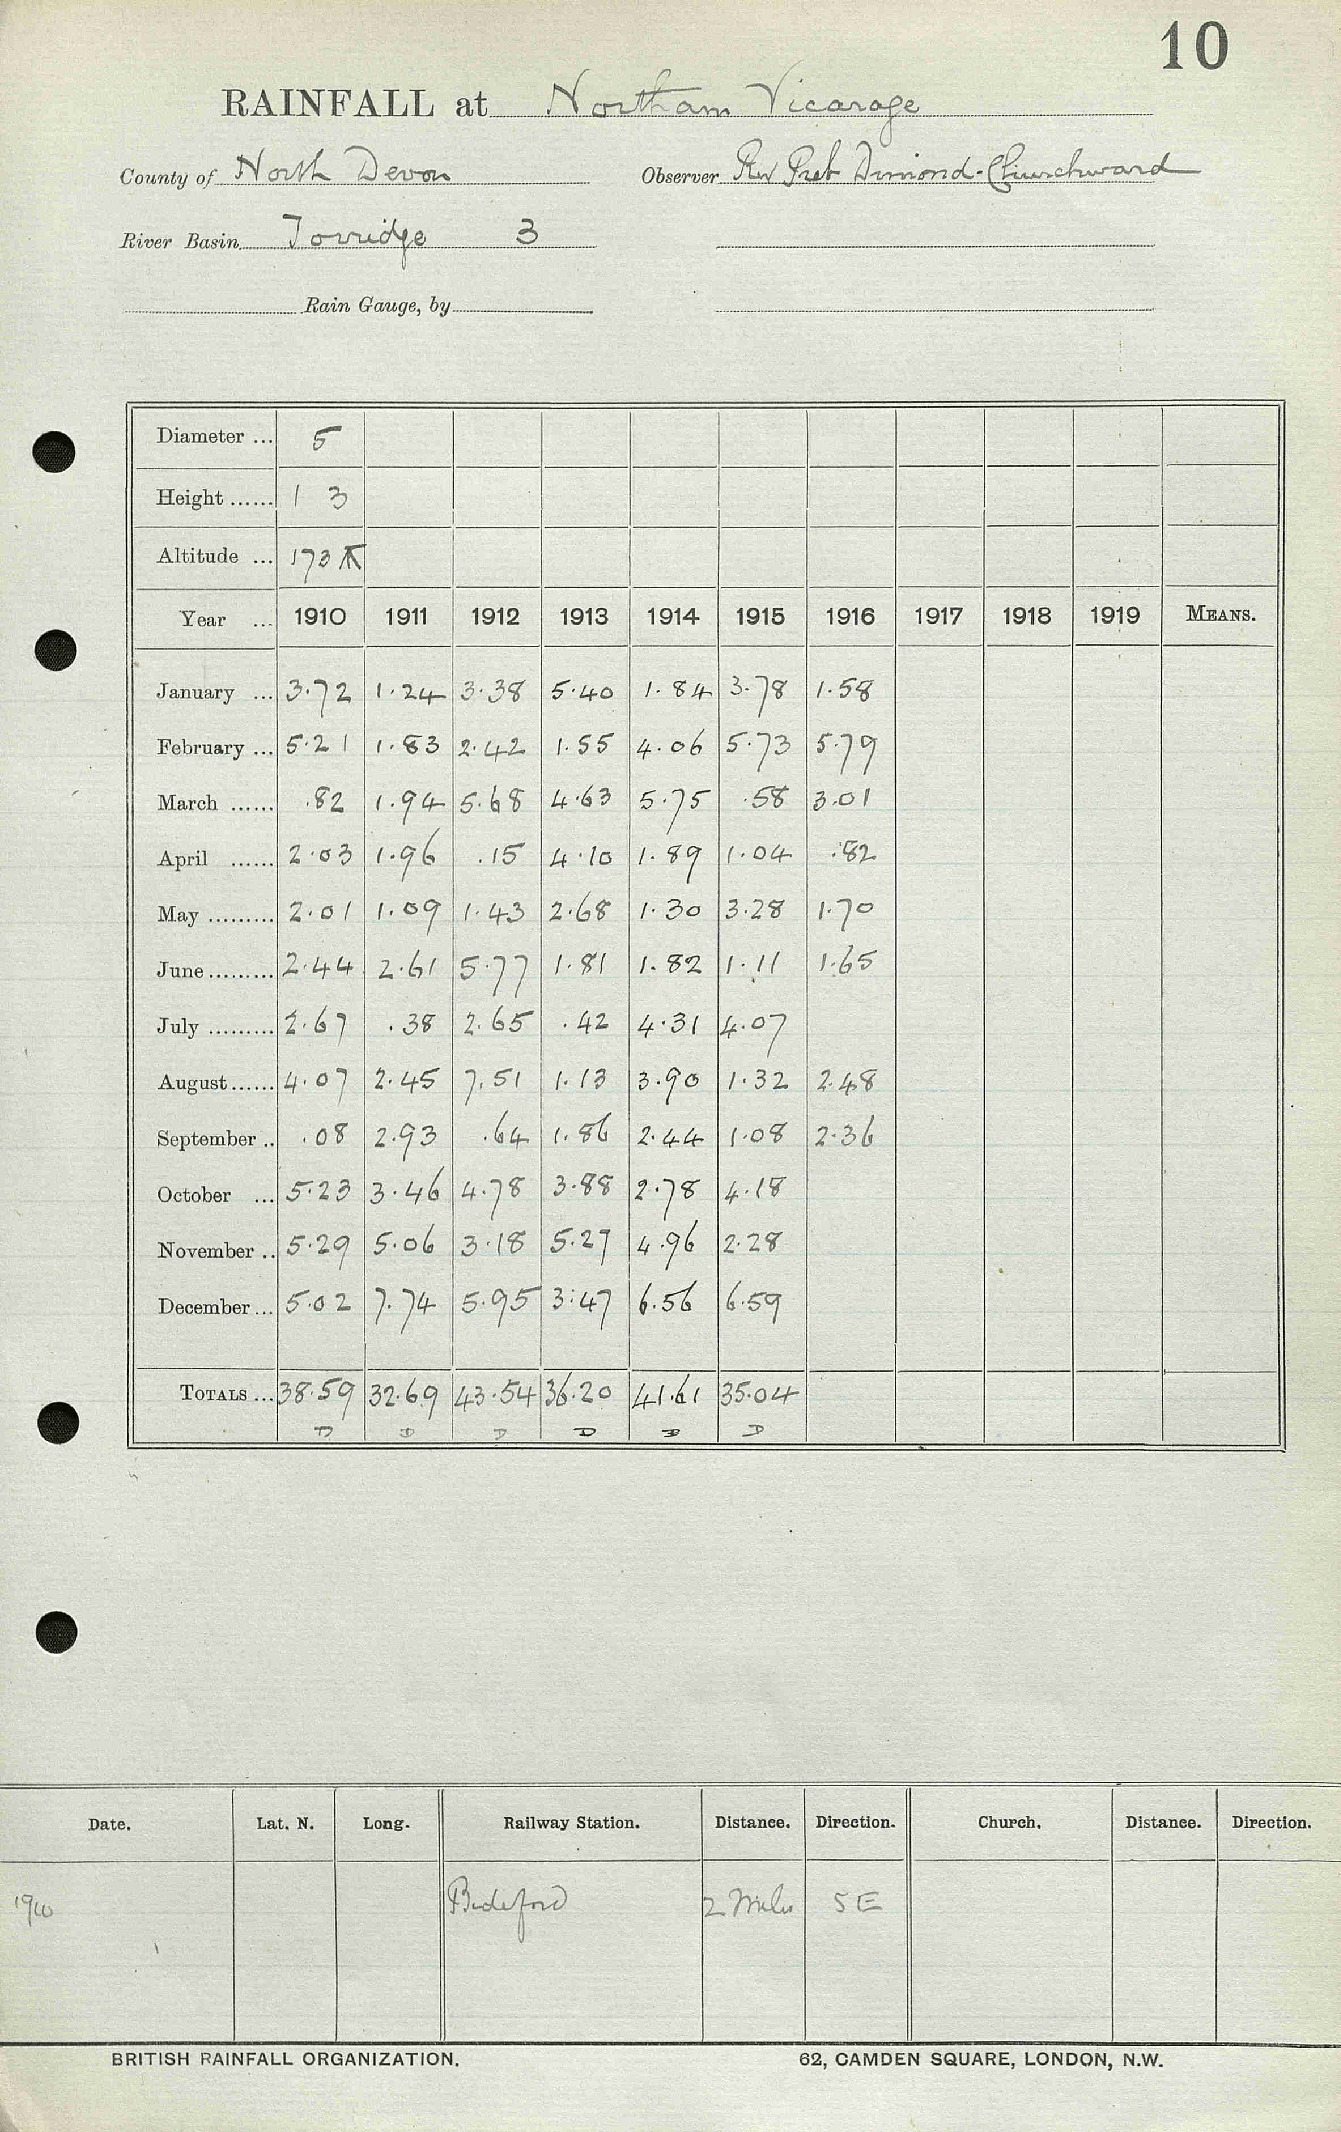 10
RAINFALL at Northam Vicarage
County of North Devon Observer Rev Preb Dimond-Churchward
River Basin Torridge 3
Rain Gauge, by
Diameter ... 5
Height ...... 1 3
Altitude ... 173
Year ... 1910 1911 1912 1913 1914 1915 1916 1917 1918 1919 MEANS.
January ... 3.72 1.24 3.38 5.40 1.84 3.78 1.58
February ... 5.21 1.83 2.42 1.55 4.06 5.73 5.79
March ...... .82 1.94 5.68 4.63 5.75 .58 3.01
April ...... 2.03 1.96 .15 4.10 1.89 1.04 .82
May ......... 2.01 1.09 1.43 2.68 1.30 3.28 1.70
June ......... 2.44 2.61 5.77 1.81 1.82 1.11 1.65
July ......... 2.67 .38 2.65 .42 4.31 4.07
August ...... 4.07 2.45 7.51 1.13 3.90 1.32 2.48
September .. .08 2.93 .64 1.86 2.44 1.08 2.36
October ... 5.23 3.46 4.78 3.88 2.78 4.18
November .. 5.29 5.06 3.18 5.27 4.96 2.28
December ... 5.02 7.74 5.95 3.47 6.56 6.59
TOTALS ... 38.59 32.69 43.54 36.20 41.61 35.04
D D D D D D
Date. Lat. N. Long. Railway Station. Distance. Direction. Church. Distance. Direction.
1910 Bideford 2 Miles SE
BRITISH RAINFALL ORGANIZATION. 62, CAMDEN SQUARE, LONDON, N.W.